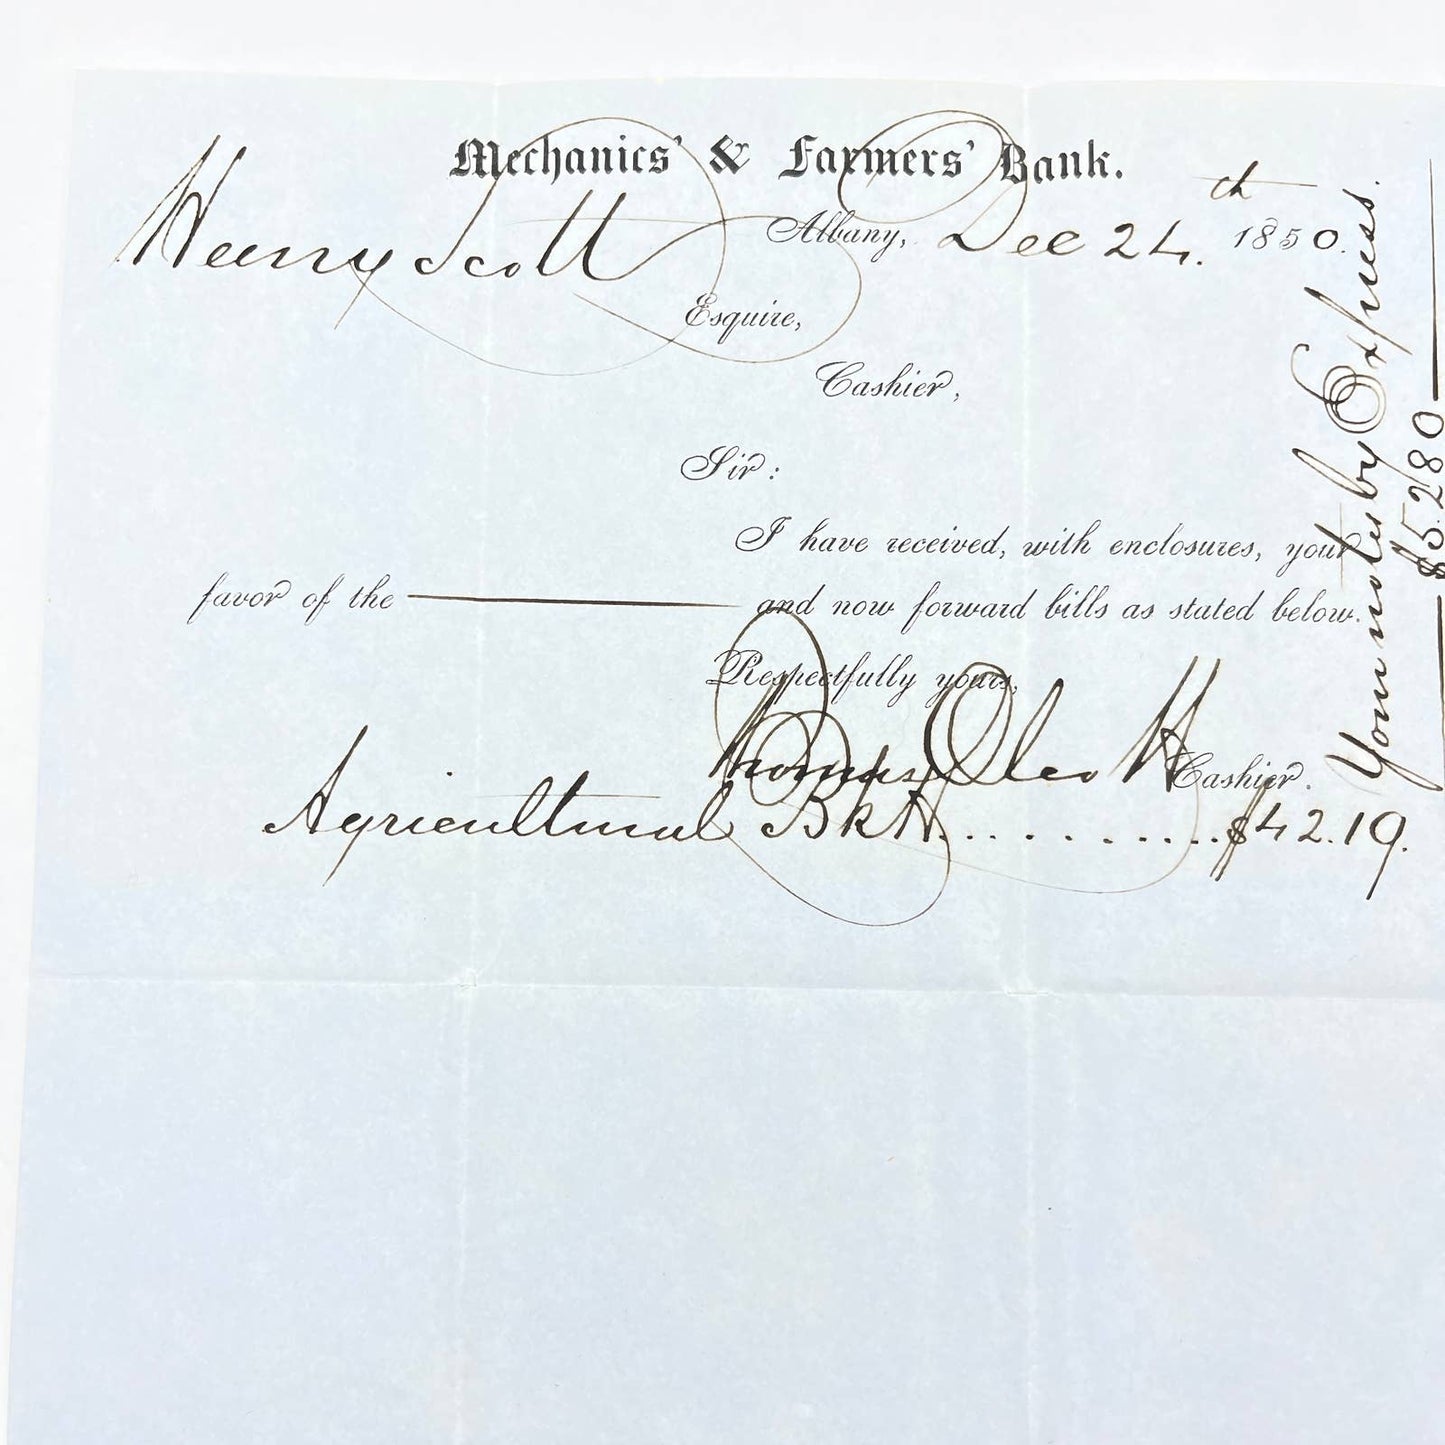 Mechanics' & Farmers' Bank.
Albany, Dec 24.th 1850.
Henry Scott
Esquire,
Cashier,
Sir:
I have received, with enclosures, your
favor of the and now forward bills as stated below.
Respectfully yours,
Thomas Olcott Cashier.
Agricultural Bk H..........$42.19.
Your notes by Express.
$5.280